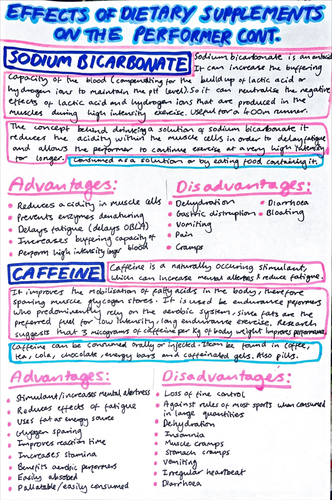 EFFECTS OF DIETARY SUPPLEMENTS
ON THE PERFORMER CONT.
SODIUM BICARBONATE
Sodium bicarbonate is an antacid
It can increase the buffering
capacity of the blood (compensating for the build up of lactic acid or
hydrogen ions to maintain the pH level). So it can neutralise the negative
effects of lactic acid and hydrogen ions that are produced in the
muscles during high intensity exercise. Useful for a 400m runner.
The concept behind drinking a solution of sodium bicarbonate it
reduces the acidity within the muscle cells in order to delay fatigue
and allows the performer to continue exercise at a very high intensity
for longer. Consumed as a solution or by eating food containing it.
Advantages:
Reduces acidity in muscle cells
Prevents enzymes denaturing
Delays fatigue (delays OBLA)
Increases buffering capacity of blood
Perform high intensity longer
Disadvantages:
Dehydration
Gastric disruption
Vomiting
Pain
Cramps
Diarrhoea
Bloating
CAFFEINE
Caffeine is a naturally occuring stimulant,
which can increase mental alertness & reduce fatigue.
It improves the mobilisation of fatty acids in the body, therefore
sparing muscle glycogen stores. It is used be endurance performers
who predominently rely on the aerobic system, since fats are the
preferred fuel for low intensity, long endurance exercise. Research
suggests that 3 micrograms of caffeine per kg of body weight improves performance.
Caffeine can be consumed orally or injected. It can be found in coffee,
tea, cola, chocolate, energy bars and caffeinated gels. Also pills.
Advantages:
Stimulant/increases mental alertness
Reduces effects of fatigue
Uses fat as energy source
Glycogen sparing
Improves reaction time
Increases stamina
Benefits aerobic performers
Easily absorbed
Pallatable/easily consumed
Disadvantages:
Loss of fine control
Against rules of most sports when consumed
in large quantities
Dehydration
Insomnia
Muscle cramps
Stomach cramps
Vomiting
Irregular heartbeat
Diarrhoea